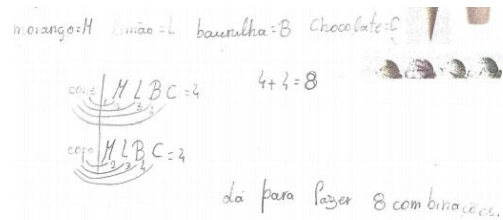 morango=M limão=L baunilha=B chocolate=C
cone M L B C=4
1 2 3 4
4+4=8
copo M L B C=4
1 2 3 4
dá para fazer 8 combinações.